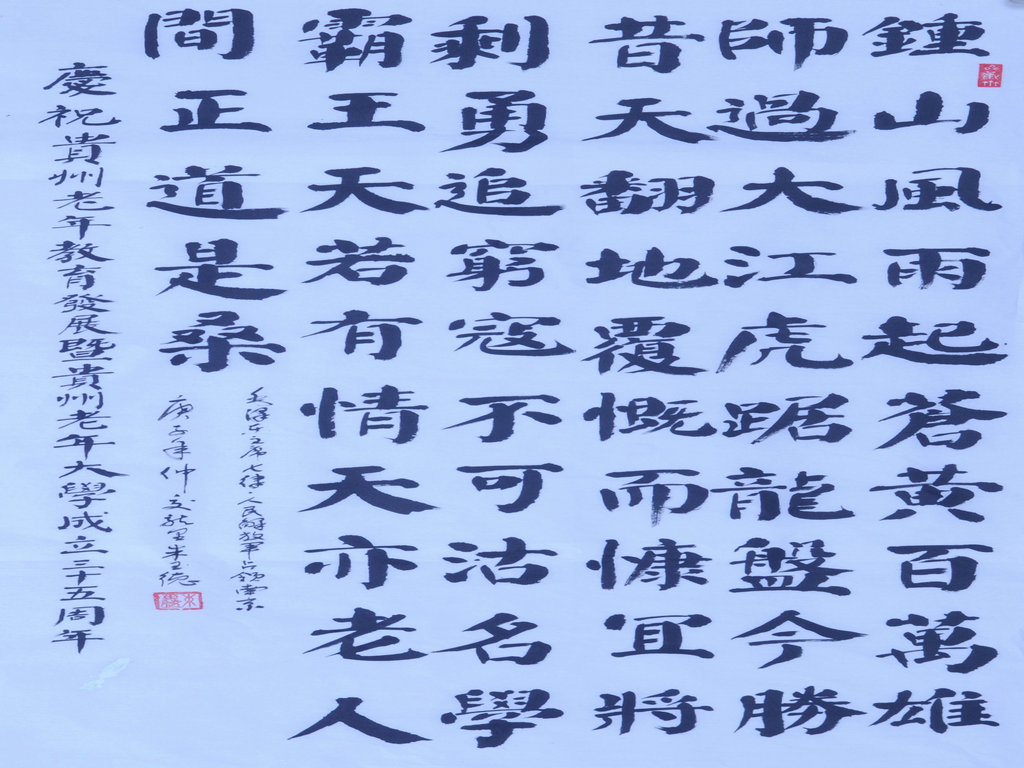 鍾山風雨起蒼黃百萬雄
師過大江虎踞龍盤今勝
昔天翻地覆慨而慷宜將
剩勇追窮寇不可沽名學
霸王天若有情天亦老人
間正道是桑
毛澤東主席七律·人民解放軍占領南京
庚子年仲
慶祝貴州老年教育發展暨貴州老年大學成立三十五周年